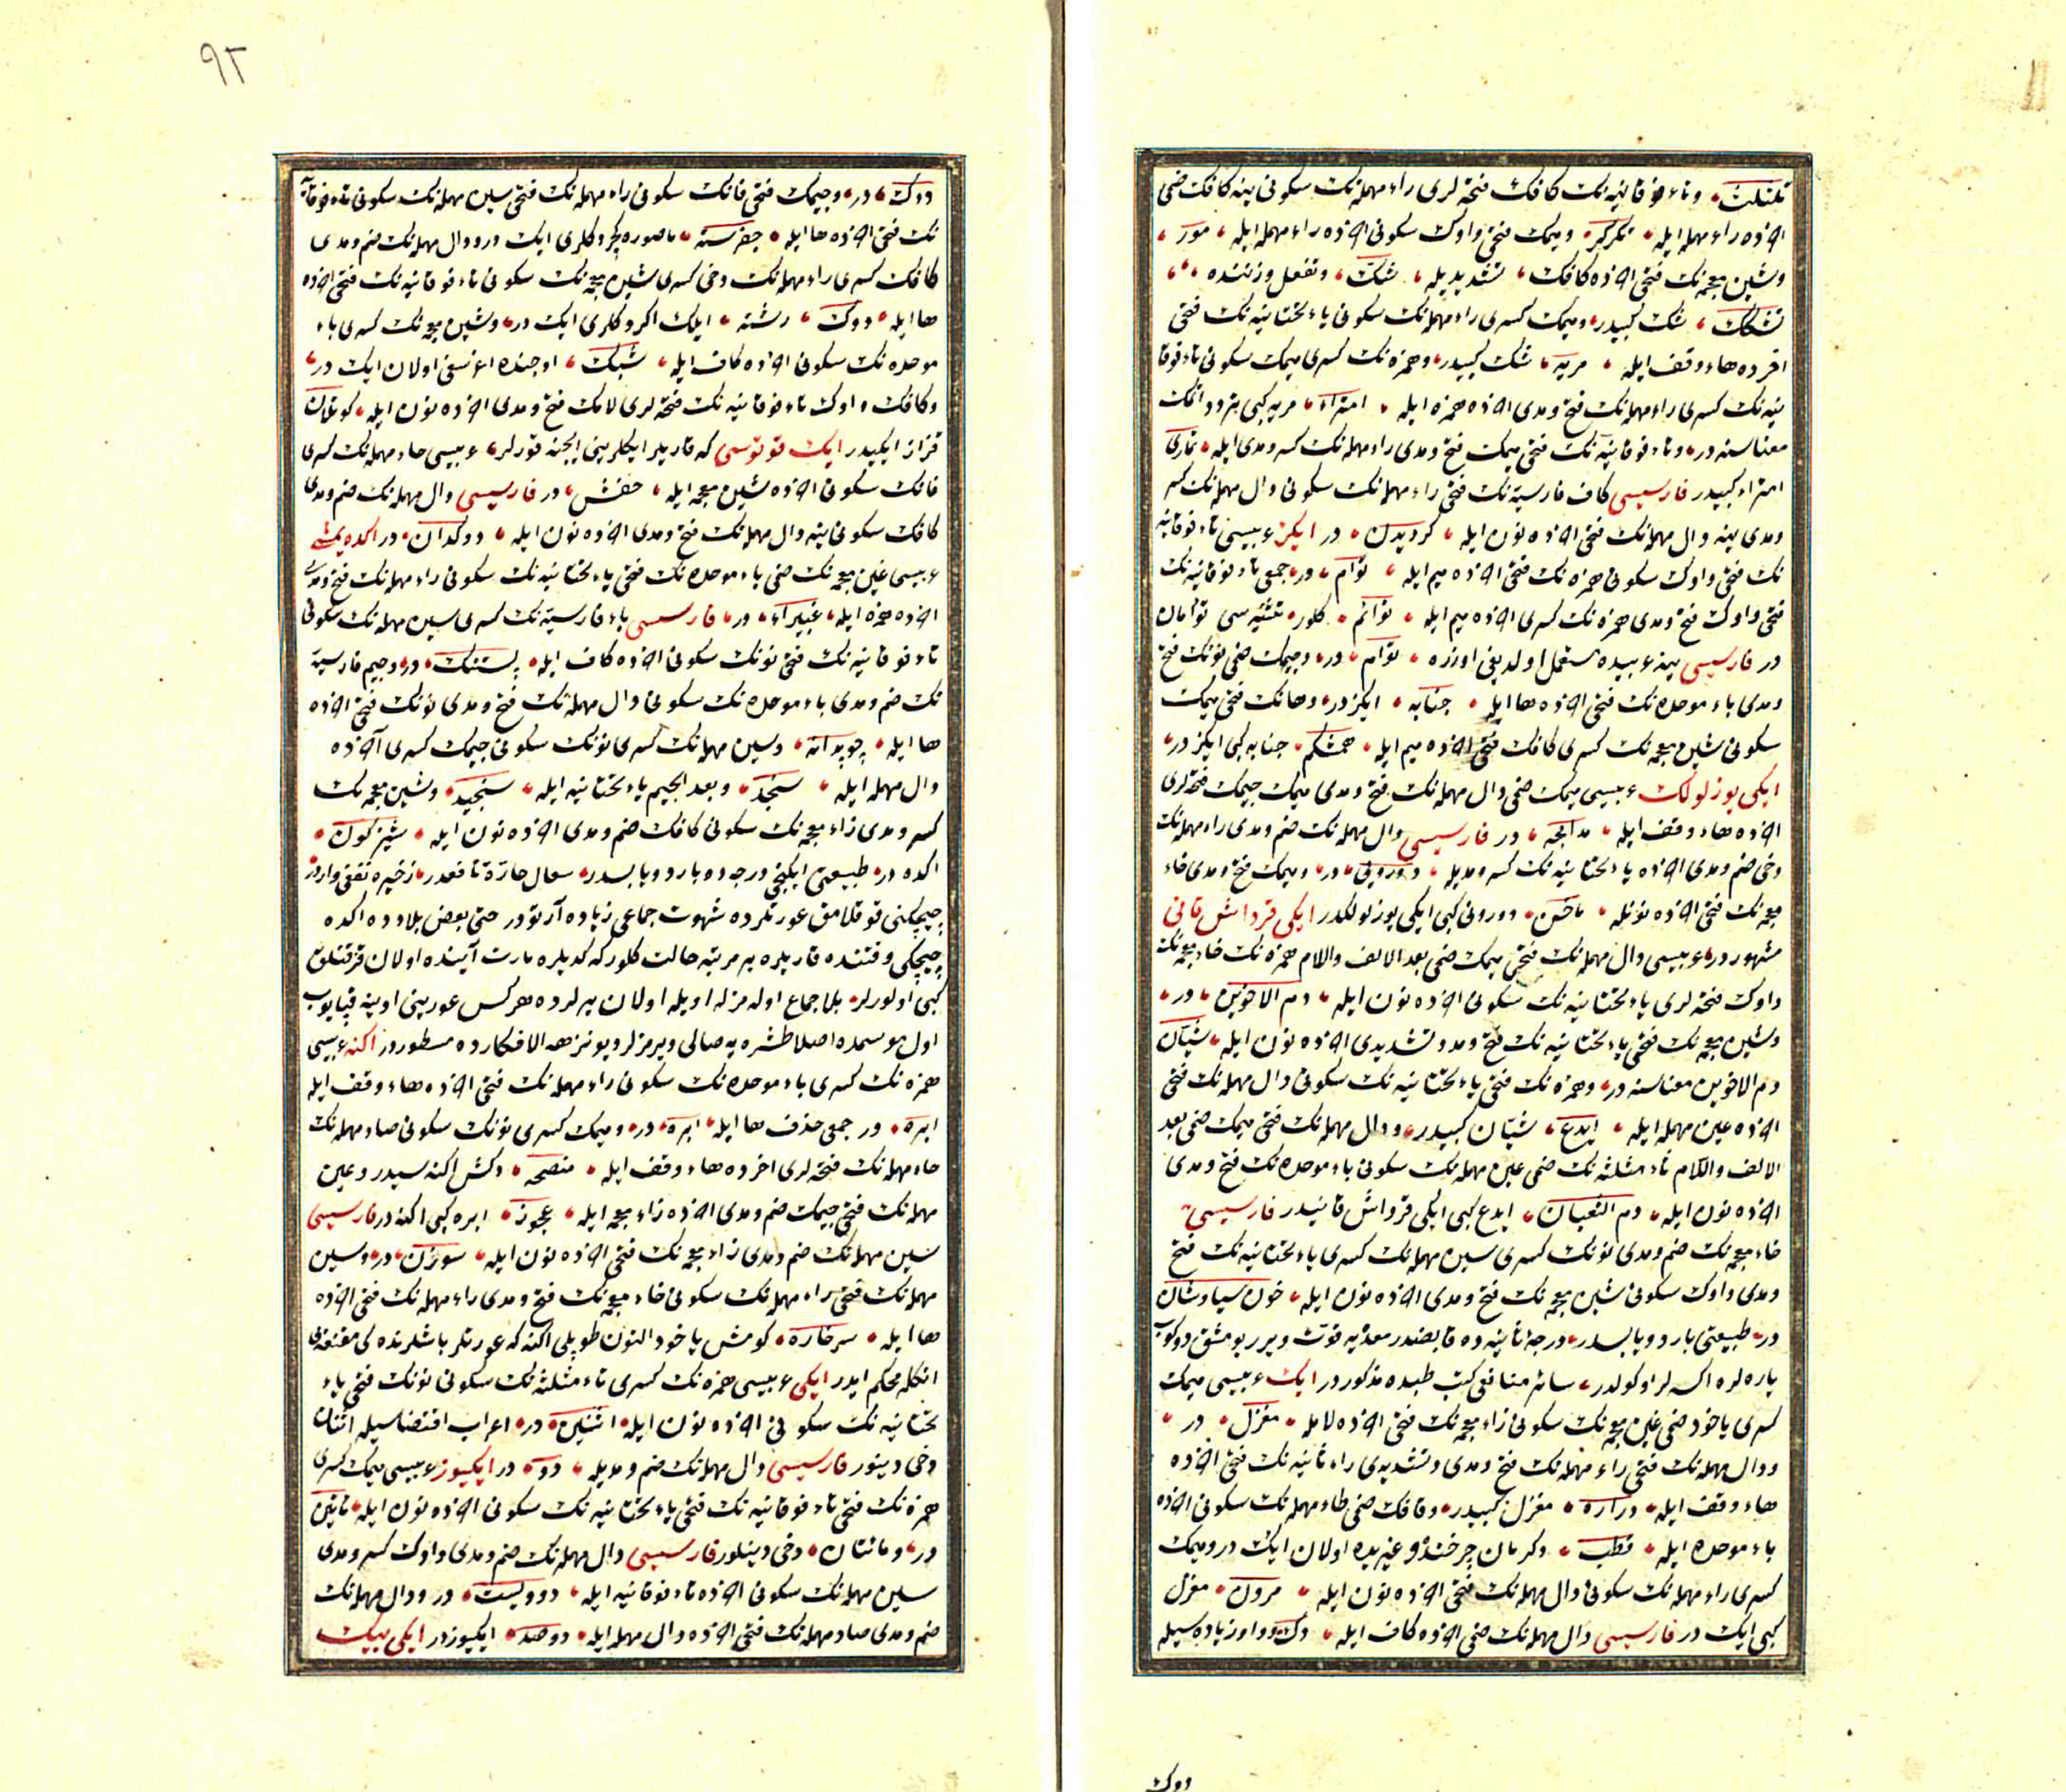 تلنلن و تاء فوقانیه‌نك كافك فتحه‌لری راء مهمله‌نك سكونی ینه كافك ضمی
آخرده راء مهمله ایله تكركر و میمك فتحی واوك سكونی آخرده راء مهمله ایله مور
و شین معجمه‌نك فتحی آخرده كافك تشدیدیله شكّ و تفعل وزننده
تشكك شك كبیدر و میمك كسری راء مهمله‌نك سكونی یاء تحتانیه‌نك فتحی
آخرده هاء وقف ایله مریه شك كبیدر و همزه‌نك كسری میمك سكونی تاء فوقا
نیه‌نك كسری راء مهمله‌نك فتح و مدی آخرده همزه ایله امتراء مریه كبی تردد اتمك
معناسنه در و تاء فوقانیه‌نك فتحی میمك فتح و مدی راء مهمله‌نك كسر و مدی ایله تماری
امتراء كبیدر فارسیسی كاف فارسیه‌نك فتحی راء مهمله‌نك سكونی دال مهمله‌نك كسر
و مدی ینه دال مهمله‌نك فتحی آخرده نون ایله كردیدن در ایكز عربیسی تاء فوقانیه
نك فتحی واوك سكونی همزه‌نك فتحی آخرده میم ایله توأم در جمعی تاء فوقانیه‌نك
فتحی واوك فتح و مدی همزه‌نك كسری آخرده میم ایله توائم كلور تثنیه‌سی توأمان
در فارسیسی ینه عربیده مستعمل اولدیغی اوزره توأم در و جیمك ضمی نونك فتح
و مدی باء موحده‌نك فتحی آخرده ها ایله جنابه ایكزدر و هانك فتحی میمك
سكونی شین معجمه‌نك كسری كافك فتحی آخرده میم ایله همشكم جنابه كبی ایكزدر
ایكی یوزلولك عربیسی میمك ضمی دال مهمله‌نك فتح و مدی میمك جیمك فتحه‌لری
آخرده هاء وقف ایله مدامجه در فارسیسی دال مهمله‌نك ضم و مدی راء مهمله‌نك
دخی ضم و مدی آخرده یاء تحتانیه‌نك كسر و مدیله دورویی در و میمك فتح و مدی خاء
معجمه‌نك فتحی آخرده نونله ماخن دورویی كبی ایكی یوزلولكدر ایكی قرداش قانی
مشهوردر عربیسی دال مهمله‌نك فتحی میمك ضمی بعد الالف واللام همزه‌نك خاء معجمه‌نك
واوك فتحه‌لری یاء تحتانیه‌نك سكونی آخرده نون ایله دم الاخوین در
و شین معجمه‌نك فتحی یاء تحتانیه‌نك فتح و مد و تشدیدی آخرده نون ایله شیّان
دم الاخوین معناسنه در و همزه‌نك فتحی یاء تحتانیه‌نك سكونی دال مهمله‌نك فتحی
آخرده عین مهمله ایله ایدع شیّان كبیدر و دال مهمله‌نك فتحی میمك ضمی بعد
الالف واللام ثاء مثلثه‌نك ضمی عین مهمله‌نك سكونی باء موحده‌نك فتح و مدی
آخرده نون ایله دم الثعبان ایدع كبی ایكی قرداش قانیدر فارسیسی
خاء معجمه‌نك ضم و مدی نونك كسری سین مهمله‌نك كسری یاء تحتانیه‌نك فتح
و مدی واوك سكونی شین معجمه‌نك فتح و مدی آخرده نون ایله خون سیاوشان
در طبیعتی بارد و یابسدر درجهٔ ثانیه‌ده قابضدر معده‌یه قوت ویرر
یاره‌لره اكسه‌لر اوكولدر سائر منافعی كتب طبده مذكوردر ایك عربیسی میمك
كسری یاخود ضمی غین معجمه‌نك سكونی زاء معجمه‌نك فتحی آخرده لامله مغزل در
و دال مهمله‌نك فتحی راء مهمله‌نك فتح و مدی و تشدیدی راء ثانیه‌نك فتحی آخرده
هاء وقف ایله دراره مغزل كبیدر و قافك ضمی طاء مهمله‌نك سكونی آخرده
باء موحده ایله قطب دكرمان چرخنده و غیریده اولان ایك در و میمك
كسری راء مهمله‌نك سكونی دال مهمله‌نك فتحی آخرده نون ایله مردن مغزل
كبی ایك در فارسیسی دال مهمله‌نك ضمی آخرده كاف ایله دك و واو زیاده‌سیله
دوك
٩٢
دوك در و جیمك فتحی فانك سكونی راء مهمله‌نك فتحی سین مهمله‌نك سكونی تاء فوقانیه
نك فتحی آخرده ها ایله جفرسته ماصوره‌یه كچوردكلری ایك در و دال مهمله‌نك ضم و مدی
كافك كسری راء مهمله‌نك دخی كسری شین معجمه‌نك سكونی تاء فوقانیه‌نك فتحی آخرده
ها ایله دوك رشته ایپلك اكردكلری ایك در و شین معجمه‌نك كسری باء
موحده‌نك سكونی آخرده كاف ایله شبك اوجنده اغرشغی اولان ایك در
و كافك واوك تاء فوقانیه‌نك فتحه‌لری لامك فتح و مدی آخرده نون ایله كوتلان
قزاز ایكیدر ایك قوتوسی كه قاریلر ایكلرینی ایچنه قورلر عربیسی حاء مهمله‌نك كسری
فانك سكونی آخرده شین معجمه ایله حفش در فارسیسی دال مهمله‌نك ضم و مدی
كافك سكونی ینه دال مهمله‌نك فتح و مدی آخرده نون ایله دوكدان در اكده یمشی
عربیسی غین معجمه‌نك ضمی باء موحده‌نك فتحی یاء تحتانیه‌نك سكونی راء مهمله‌نك فتح و مدی
آخرده همزه ایله غبیراء در فارسیسی باء فارسیه‌نك كسری سین مهمله‌نك سكونی
تاء فوقانیه‌نك فتحی نونك سكونی آخرده كاف ایله پستنك در و جیم فارسیه
نك ضم و مدی باء موحده‌نك سكونی دال مهمله‌نك فتح و مدی نونك فتحی آخرده
ها ایله چوبدانه و سین مهمله‌نك كسری نونك سكونی جیمك كسری آخرده
دال مهمله ایله سنجد و بعد الجیم یاء تحتانیه ایله سنجید و شین معجمه‌نك
كسر و مدی زاء معجمه‌نك سكونی كافك ضم و مدی آخرده نون ایله شیزكون
اكده در طبیعتی ایكنجی درجه‌ده بارد و یابسدر سعال حارّه‌یه نافعدر زخیره نفعی واردر
چیچكنی قوقلامق عورتلرده شهوت جماعی زیاده آرتورر حتی بعض بلادده اكده
چیچكی وقتنده قاریلره بر مرتبه حالت كلور كه كدیلره مارت آینده اولان قزقنلق
كبی اولورلر بلا جماع اوله‌مزلر اویله اولان یرلرده هركس عورتنی اوینه قپایوب
اول موسمده اصلا طشره‌یه صالی ویرمزلر دیو نزهه الافكارده مسطوردر اكنه عربیسی
همزه‌نك كسری باء موحده‌نك سكونی راء مهمله‌نك فتحی آخرده هاء وقف ایله
ابره در جمعی حذف ها ایله ابر در و میمك كسری نونك سكونی صاد مهمله‌نك
حاء مهمله‌نك فتحه‌لری آخرده هاء وقف ایله منصحه دكش اكنه‌سیدر و عین
مهمله‌نك فتحی جیمك ضم و مدی آخرده زاء معجمه ایله عجوز ابره كبی اكنه در فارسیسی
سین مهمله‌نك ضم و مدی زاء معجمه‌نك فتحی آخرده نون ایله سوزن در و سین
مهمله‌نك فتحی راء مهمله‌نك سكونی خاء معجمه‌نك فتح و مدی راء مهمله‌نك فتحی آخرده
ها ایله سرخاره كومش یاخود التون طوپلی اكنه كه عورتلر باشلرنده كی مقنعه‌یی
انكله محكم ایدر ایكی عربیسی همزه‌نك كسری ثاء مثلثه‌نك سكونی نونك فتحی یاء
تحتانیه‌نك سكونی آخرده نون ایله اثنین در اعراب اقتضاسیله اثنان
دخی دینور فارسیسی دال مهمله‌نك ضم و مدیله دو در ایكیوز عربیسی میمك كسری
همزه‌نك فتحی تاء فوقانیه‌نك فتحی یاء تحتانیه‌نك سكونی آخرده نون ایله مائتین
در و مائتان دخی دینلور فارسیسی دال مهمله‌نك ضم و مدی واوك كسر و مدی
سین مهمله‌نك سكونی آخرده تاء فوقانیه ایله دوویست در و دال مهمله‌نك
ضم و مدی صاد مهمله‌نك فتحی آخرده دال مهمله ایله دوصد ایكیوزدر ایكی بیك